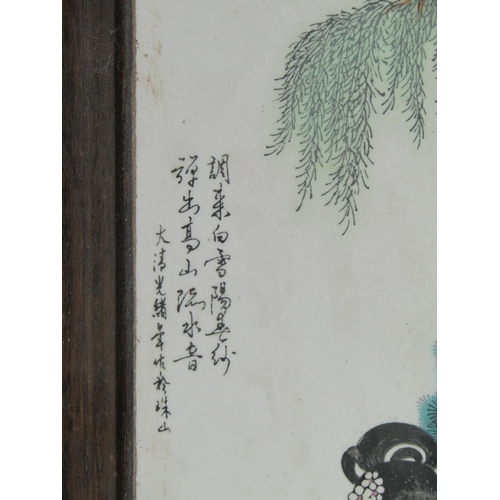 調來白雪陽春紗
彈出高山流水音
大清光緒年作於珠山